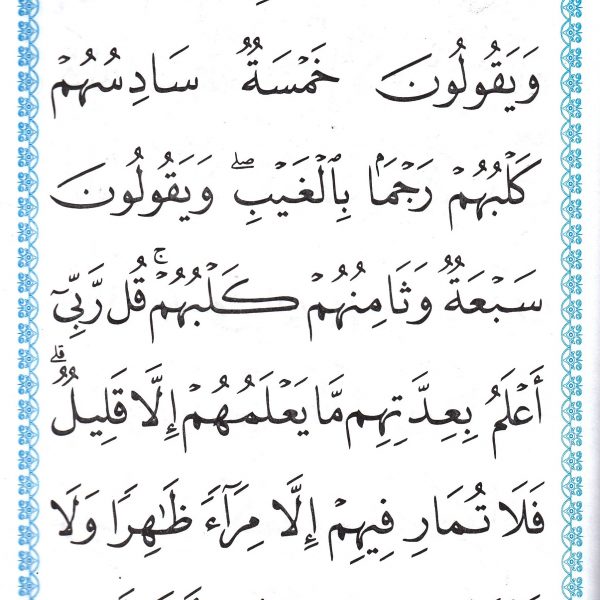 وَيَقُولُونَ خَمْسَةٌ سَادِسُهُمْ
كَلْبُهُمْ رَجْمَۢا بِٱلْغَيْبِ ۖ وَيَقُولُونَ
سَبْعَةٌ وَثَامِنُهُمْ كَلْبُهُمْ ۚ قُل رَّبِّىٓ
أَعْلَمُ بِعِدَّتِهِم مَّا يَعْلَمُهُمْ إِلَّا قَلِيلٌ ۗ
فَلَا تُمَارِ فِيهِمْ إِلَّا مِرَآءً ظَٰهِرًا وَلَا